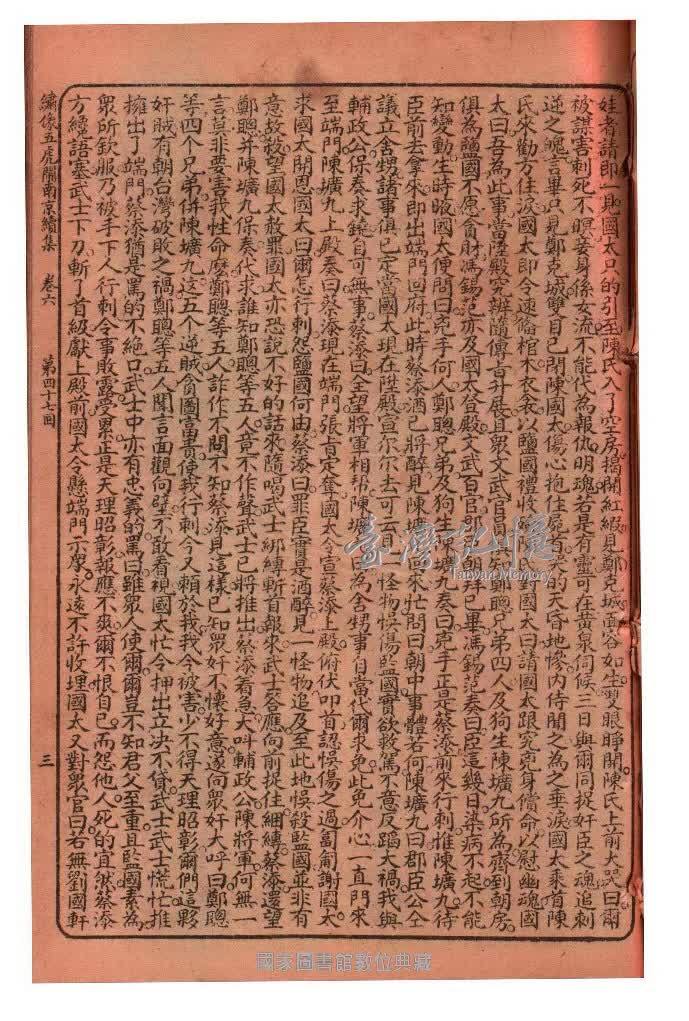 娃者請即一見國太只的引至陳氏入了空房揭開紅緞見鄭克𡒉面容如生雙眼睜開陳氏上前大哭曰爾
被謀害刺死不瞑妾身係女流不能代為報仇明魂若是有靈可在黃泉伺候三日與爾同捉奸臣之魂追刺
逆之魄言畢只見鄭克𡒉雙目已閉陳國太傷心抱住屍首哭的天昏地慘內侍聞之為之垂淚國太乘着陳
氏來勸方住淚國太即令速備棺木衣衾以監國禮收殮陳氏對國太曰請國太跟究兇身償命以慰幽魂國
太曰吾為此事當陞殿究辨隨傳古升殿且眾文武官員知鄭聰兄弟四人及狗生陳壙九所為齊到朝房
俱為監國不愿貪財馮錫范亦及國太登殿文武百官即朝拜已畢馮錫范奏曰臣這幾日染病不起不能
知變動生時晙國太便問曰兇手何人鄭聰兄弟及狗生陳壙九奏曰兇手正是蔡添前來行刺惟陳壙九待
臣前去拿來即出端門回府此時蔡添酒已將醉見陳壙九回來忙問曰朝中事體若何陳壙九曰郡臣公仝
議立舍甥諸事俱已定當國太現在陞殿宣爾爾去可云見一怪物悞傷監國實欲救駕不意反蹈大禍我與
輔政公保奏求饒自可無事蔡添曰全望將軍相帮陳壙九曰為舍甥事自當代爾求免此免介心一直門來
至端門陳壙九上殿奏曰蔡添現在端門張肯定奪國太令宣蔡添上殿俯伏叩首認悞傷之過匐匍謝國太
求國太開恩國太曰爾怎行刺怨監國何由蔡添曰罪臣實是酒醉見一怪物追及至此地悞殺監國並非有
意故殺望國太赦罪國太亦恐說不好的話來隨喝武士綁縛斬首報來武士答應向前捉住綑縛蔡添還望
鄭聰并陳壙九保奏代求誰知鄭聰等五人竟不作聲武士已將推出蔡添着急大叫輔政公陳將軍何無一
言莫非要害我性命麼鄭聰等五人詐作不聞不知蔡添見這樣已知眾奸不懷好意遂向眾奸大呼曰鄭聰
等四个兄弟併陳壙九這五个逆賊貪圖富貴使我行刺今又賴於我我今被害少不得天理昭彰爾們這夥
奸賊有朝台灣破敗之禍鄭聰等五人聞言面觀向壁不敢看視國太忙令押出立決不貸武士武士慌忙推
擁出了端門蔡添猶是罵的不絕口武士中亦有忠義的罵曰雖眾人使爾爾豈不知君父至重且監國素為
眾所欽服乃被手下人行刺今事敗露受累正是天理昭彰報應不爽爾不恨自己而怨他人死的宜然蔡添
方纔語塞武士下刀斬了首級獻上殿前國太令懸端門示眾永遠不許收埋國太又對眾官曰若無劉國軒
繡像五虎鬧南京續集　卷六　第四十七回　三
臺灣記憶
Taiwan Memory
國家圖書館數位典藏